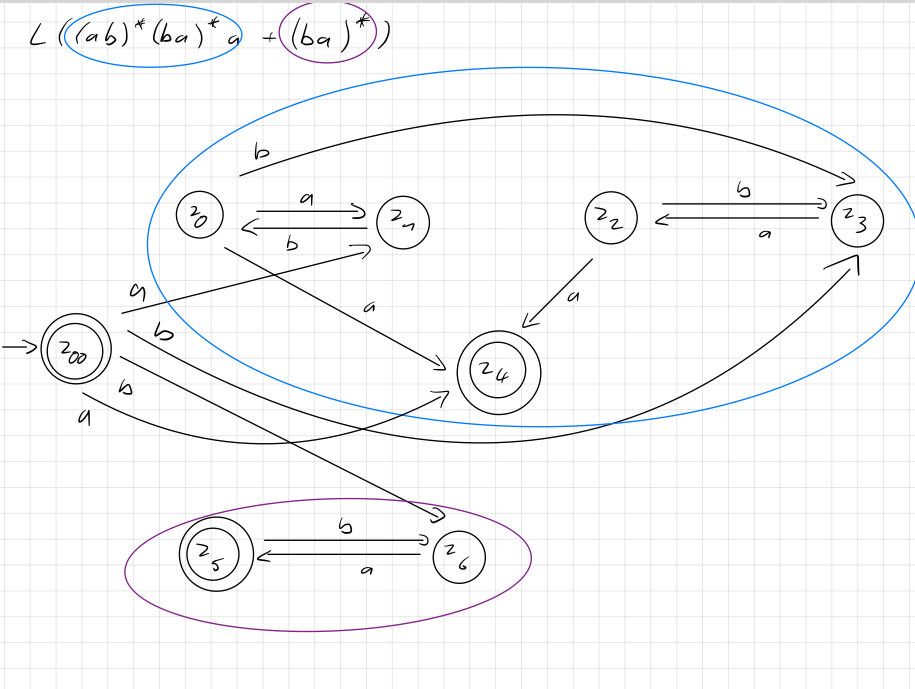 L((ab)*(ba)*a + (ba)*)
b
z0
a
b
z1
z2
b
a
z3
a
a
a
b
z00
b
a
z4
z5
b
a
z6